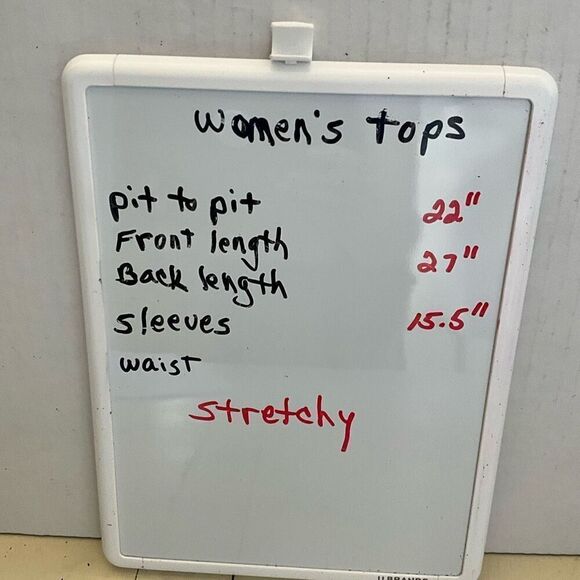 women's tops
pit to pit 22"
Front length 27"
Back length
sleeves 15.5"
waist
stretchy
U BRANDS